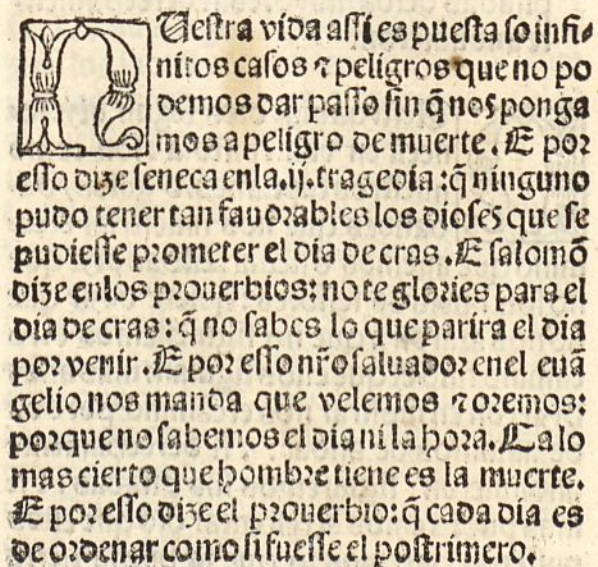 NUestra vida assi es puesta so infi-
nitos casos ⁊ peligros que no po
demos dar passo sin q̃ nos ponga
mos a peligro de muerte. E por
esso dize seneca enla .ij. tragedia: q̃ ninguno
pudo tener tan fauorables los dioses que se
pudiesse prometer el dia de cras. E salomõ
dize enlos prouerbios: no te glories para el
dia de cras: q̃ no sabes lo que parira el dia
por venir. E por esso nr̃o saluador enel euã
gelio nos manda que velemos ⁊ oremos:
porque no sabemos el dia ni la hora. Ca lo
mas cierto que hombre tiene es la muerte.
E por esso dize el prouerbio: q̃ cada dia es
de ordenar como si fuesse el postrimero.